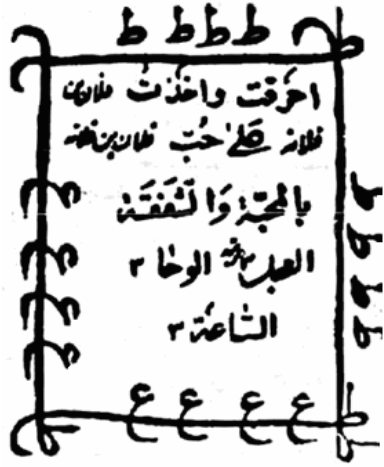 ط ط ط ط
احرقت واخذت فلان بن
فلانه على حُبّ فلان بن فلانه
بالمحبّة وَالشفقَة
العجل ٣ مرّة الوحا ٣
السّاعَة ٣
ع ع ع ع